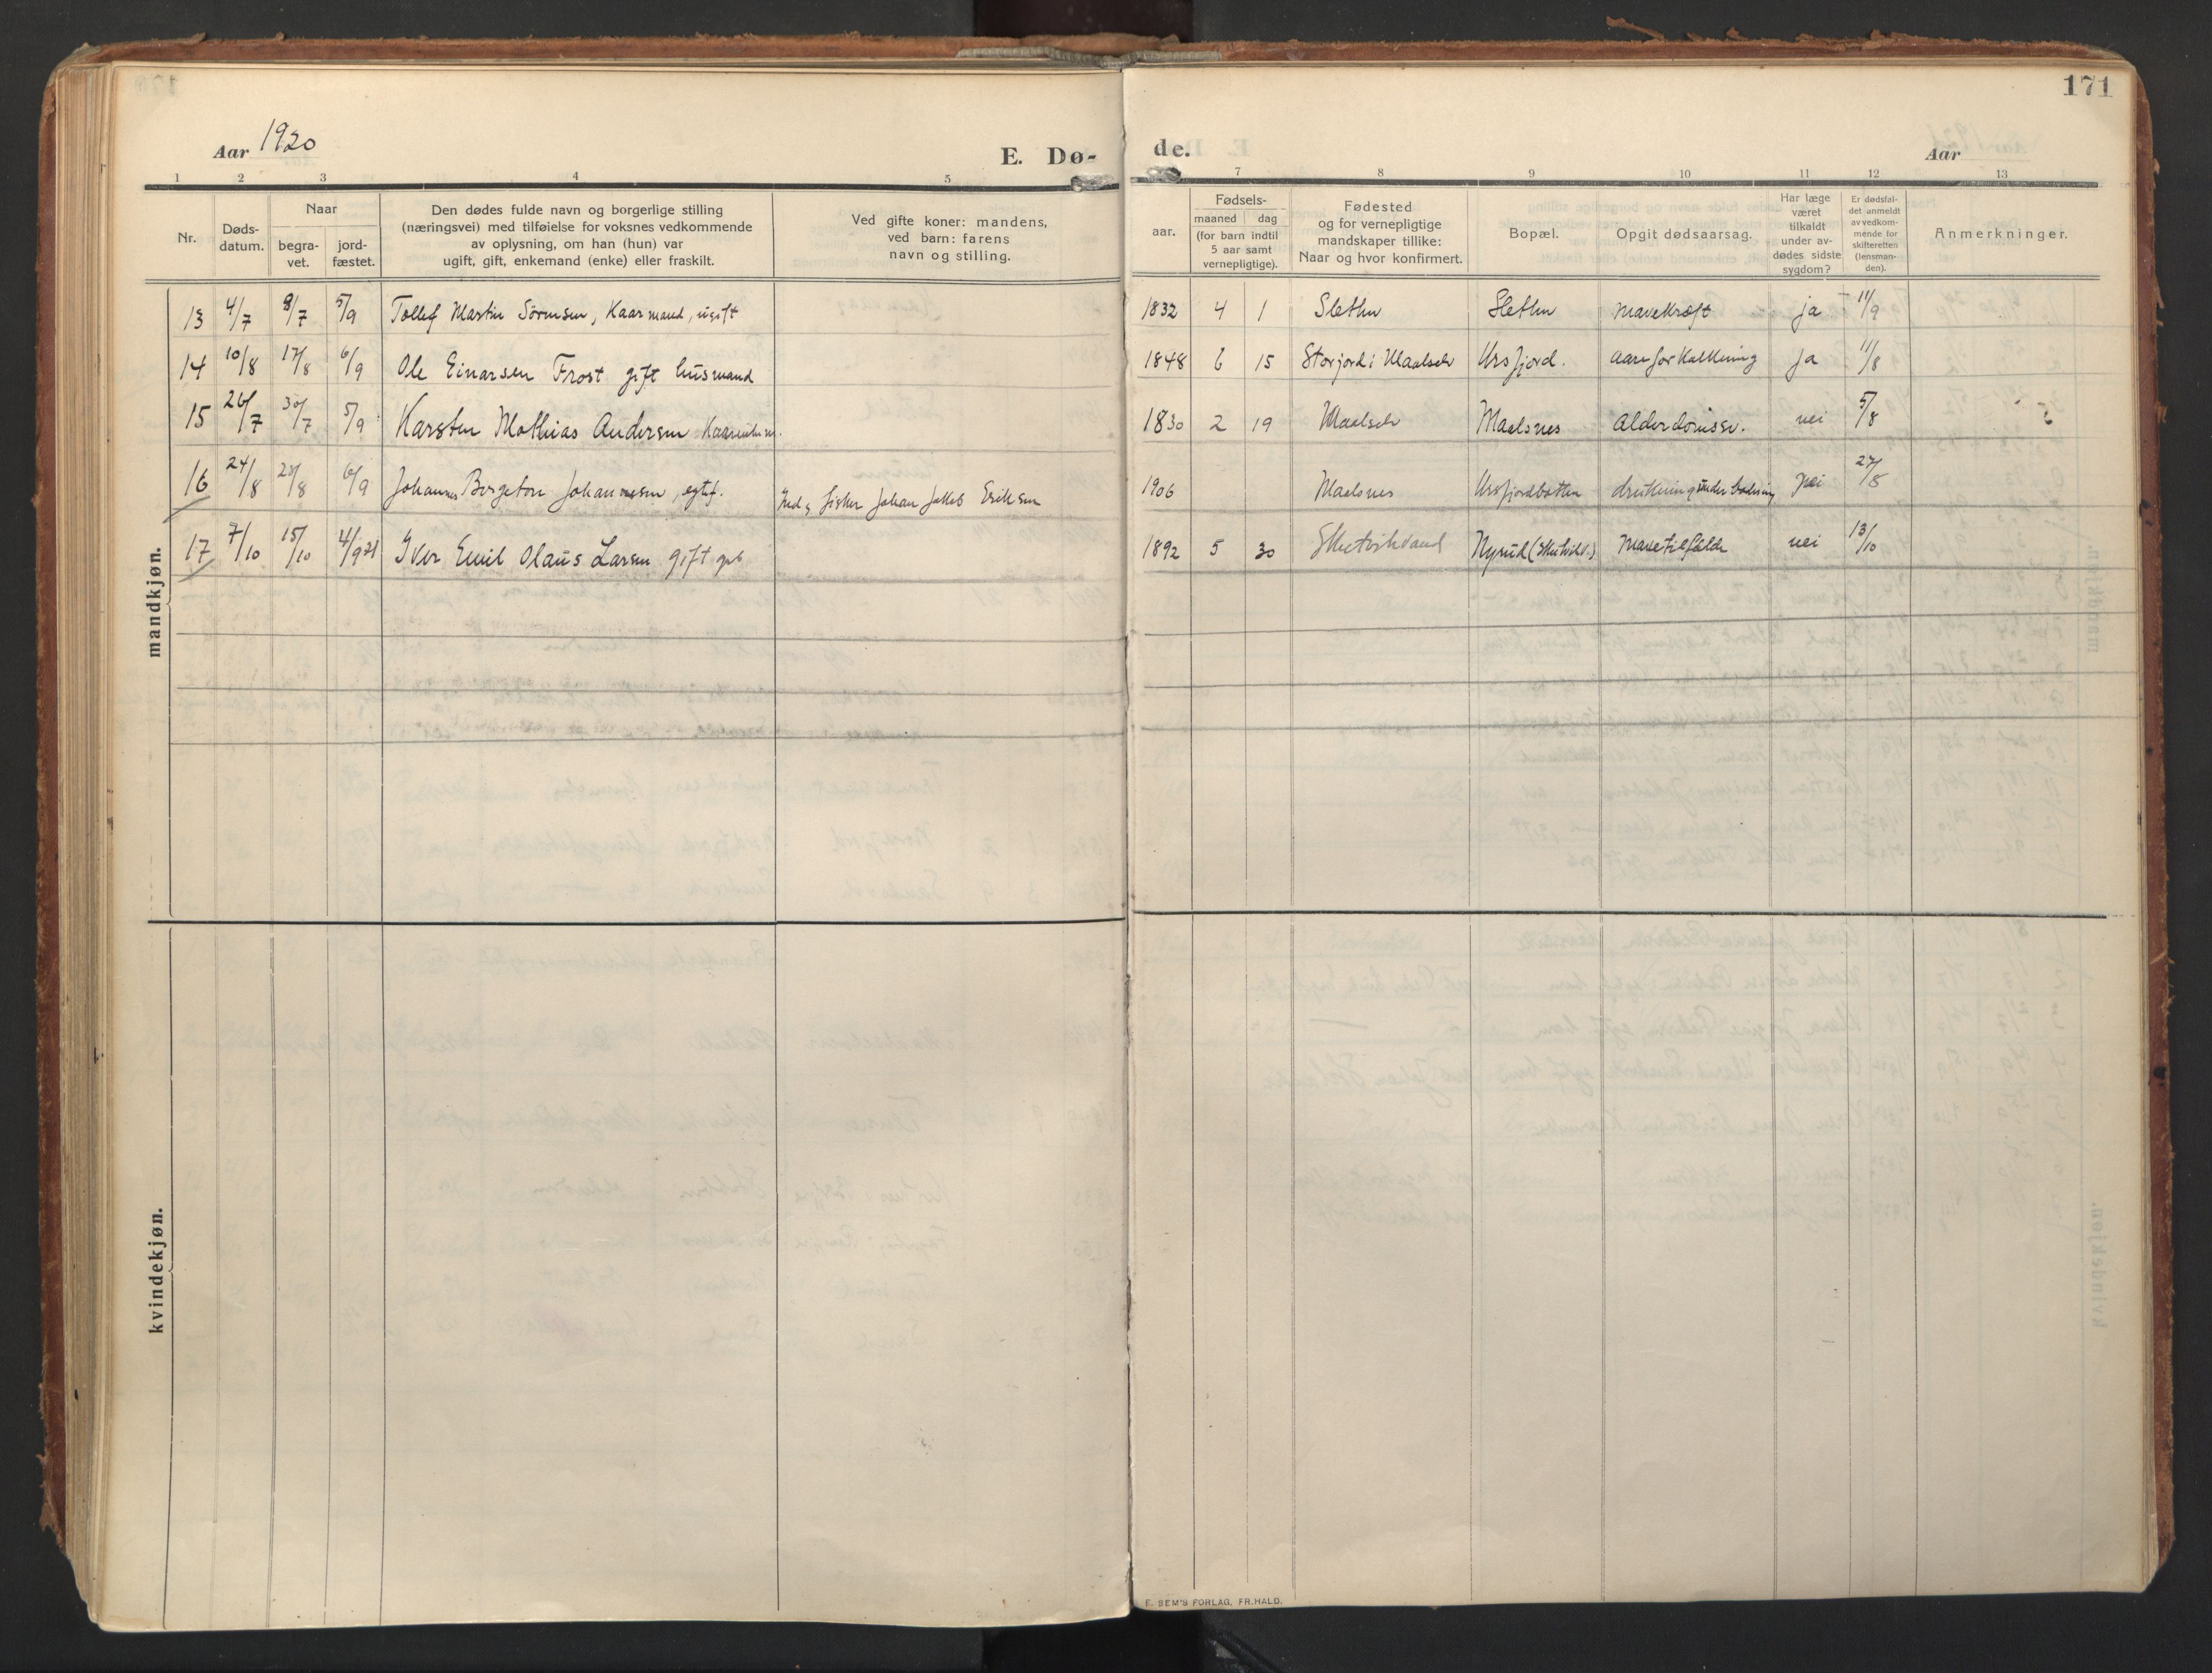 171
Aar 1920
E. Dø-
de.
Aar
1 2 3 4 5 7 8 9 10 11 12 13
Nr.
Døds-
datum.
Naar
begra-
vet.
jord-
fæstet.
Den dødes fulde navn og borgerlige stilling
(næringsvei) med tilføielse for voksnes vedkommende
av oplysning, om han (hun) var
ugift, gift, enkemand (enke) eller fraskilt.
Ved gifte koner: mandens,
ved barn: farens
navn og stilling.
aar.
Fødsels-
maaned dag
(for barn indtil
5 aar samt
vernepligtige).
Fødested
og for vernepligtige
mandskaper tillike:
Naar og hvor konfirmert.
Bopæl.
Opgit dødsaarsag.
Har læge
været
tilkaldt
under av-
dødes sidste
sygdom?
Er dødsfal-
det anmeldt
av vedkom-
mende for
skifteretten
(lensman-
den).
Anmerkninger.
mandkjøn.
13 4/7 8/7 5/9 Tollef Martin Sörensen, Kaarmand, ugift 1832 4 1 Slethn Slethn Mavekræft ja 11/9
14 10/8 17/8 6/9 Ole Einarsen Frost gift husmand 1848 6 15 Storjord i Maalselv Ursfjord. aareforkalkning ja 11/8
15 26/7 30/7 5/9 Karsten Mathias Andersen 1830 2 19 Maalselv Maalsnes Alderdomssv. nei 5/8
16 24/8 28/8 6/9 Johannes Bergeton Johannesen, egtef. Fisker Johan Jakob Eriksen 1906 Maalsnes Ursfjordbotten drukning under badning nei 27/8
17 7/10 15/10 4/9 21 Iver Emil Olaus Larsen gift gbr 1892 5 30 Skutvikvand Nyrud (Skutvikv.) Mavetilfælde nei 13/10
kvindekjøn.
E. SEM'S FORLAG, FR.HALD.